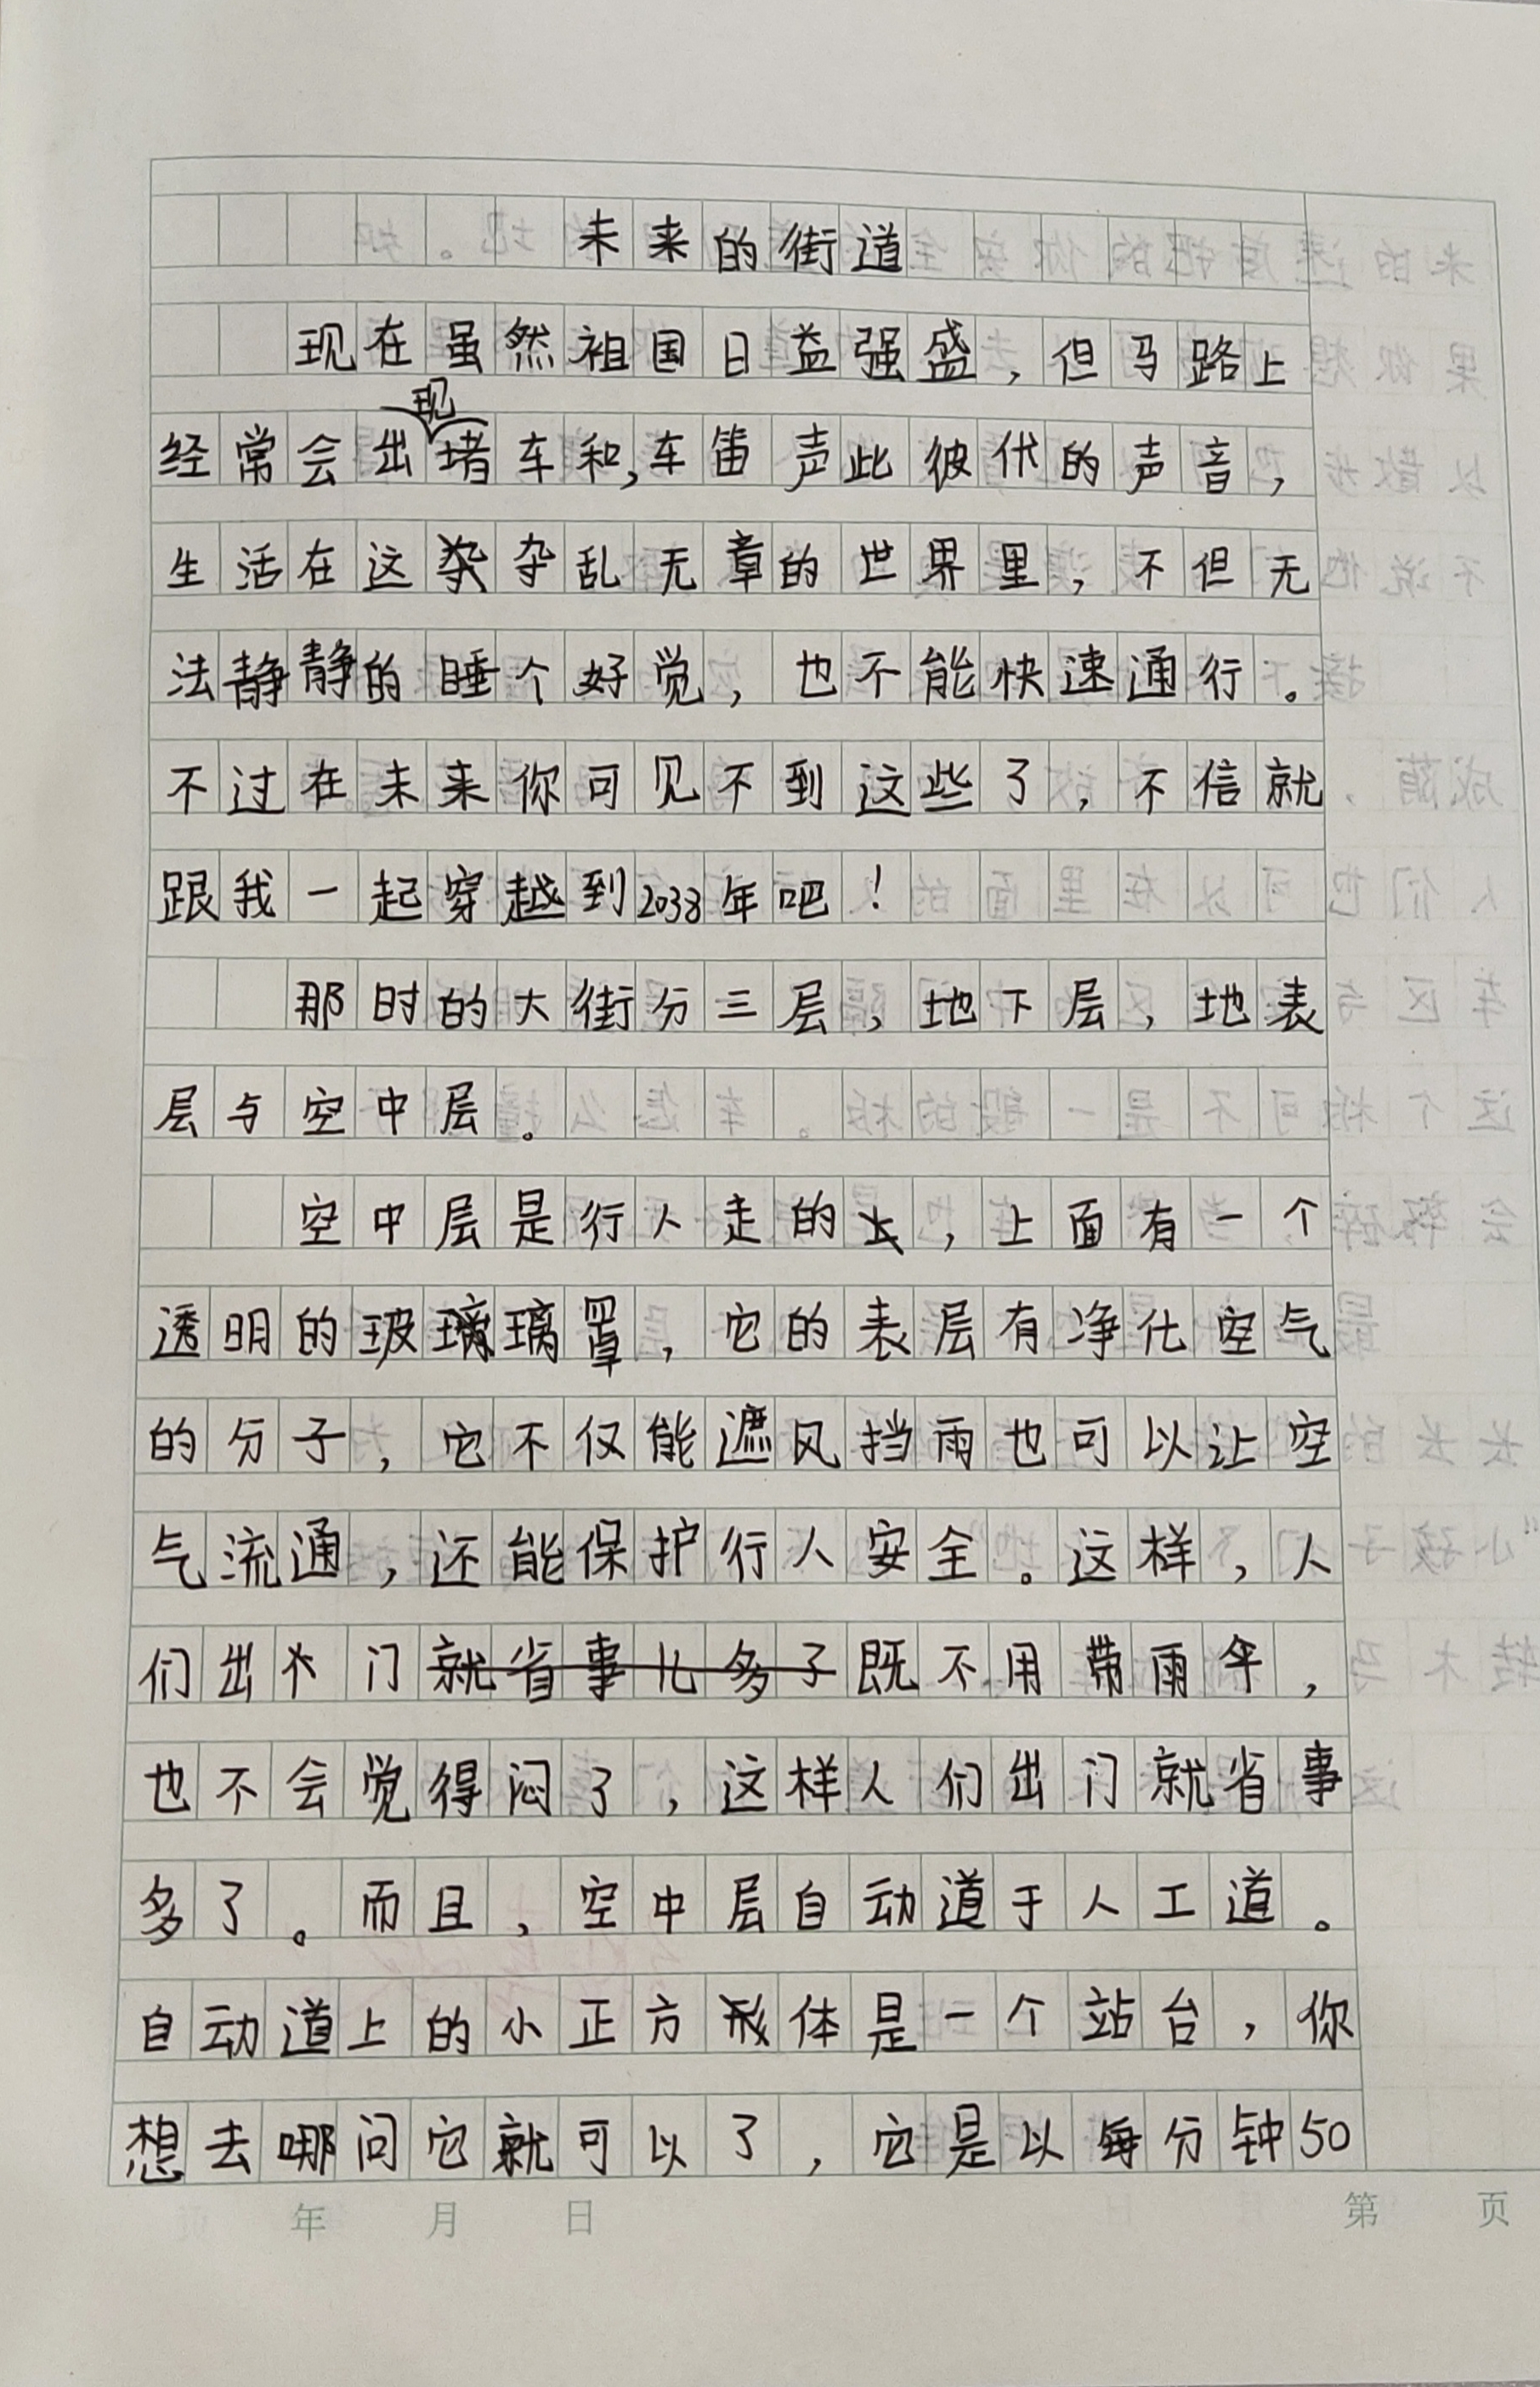 未来的街道
现在虽然祖国日益强盛，但马路上
经常会出现堵车和，车笛声此彼伏的声音，
生活在这杂乱无章的世界里，不但无
法静静的睡个好觉，也不能快速通行。
不过在未来你可见不到这些了，不信就
跟我一起穿越到2038年吧！
那时的大街分三层，地下层，地表
层与空中层。
空中层是行人走的，上面有一个
透明的玻璃罩，它的表层有净化空气
的分子，它不仅能遮风挡雨也可以让空
气流通，还能保护行人安全。这样，人
们出门既不用带雨伞，
也不会觉得闷了，这样人们出门就省事
多了。而且，空中层自动道于人工道。
自动道上的小正方体是一个站台，你
想去哪问它就可以了，它是以每分钟50
年 月 日
第 页